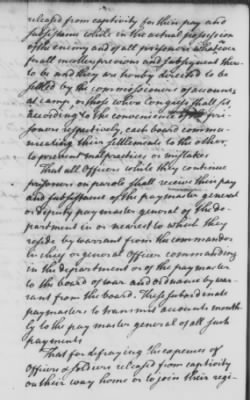 released from captivity for their pay and
subsistance while in the actual possession
of the enemy and of all prisoners whatever
for all matters previous and subsequent there-
to be and they are hereby directed to be
settled by the commissioners of accounts
at camp or those where Congress shall sit,
according to the convenience of the pri-
soners respectively, each board commu-
nicating their settlements to the other,
to prevent malpractices or mistakes
That all Officers while they continue
prisoners on parole shall receive their pay
and subsistance of the paymaster general
or deputy paymaster general of the de-
partment in or nearest to which they
reside by warrant from the commander
in chief or general Officer commanding
in the department or of the paymaster
to the board of war and ordnance by war-
rant from the board. These subordinate
paymasters to transmit accounts month-
ly to the pay master general of all such
payments
That for defraying the expences of
Officers & soldiers released from captivity
on their way home or to join their regi-